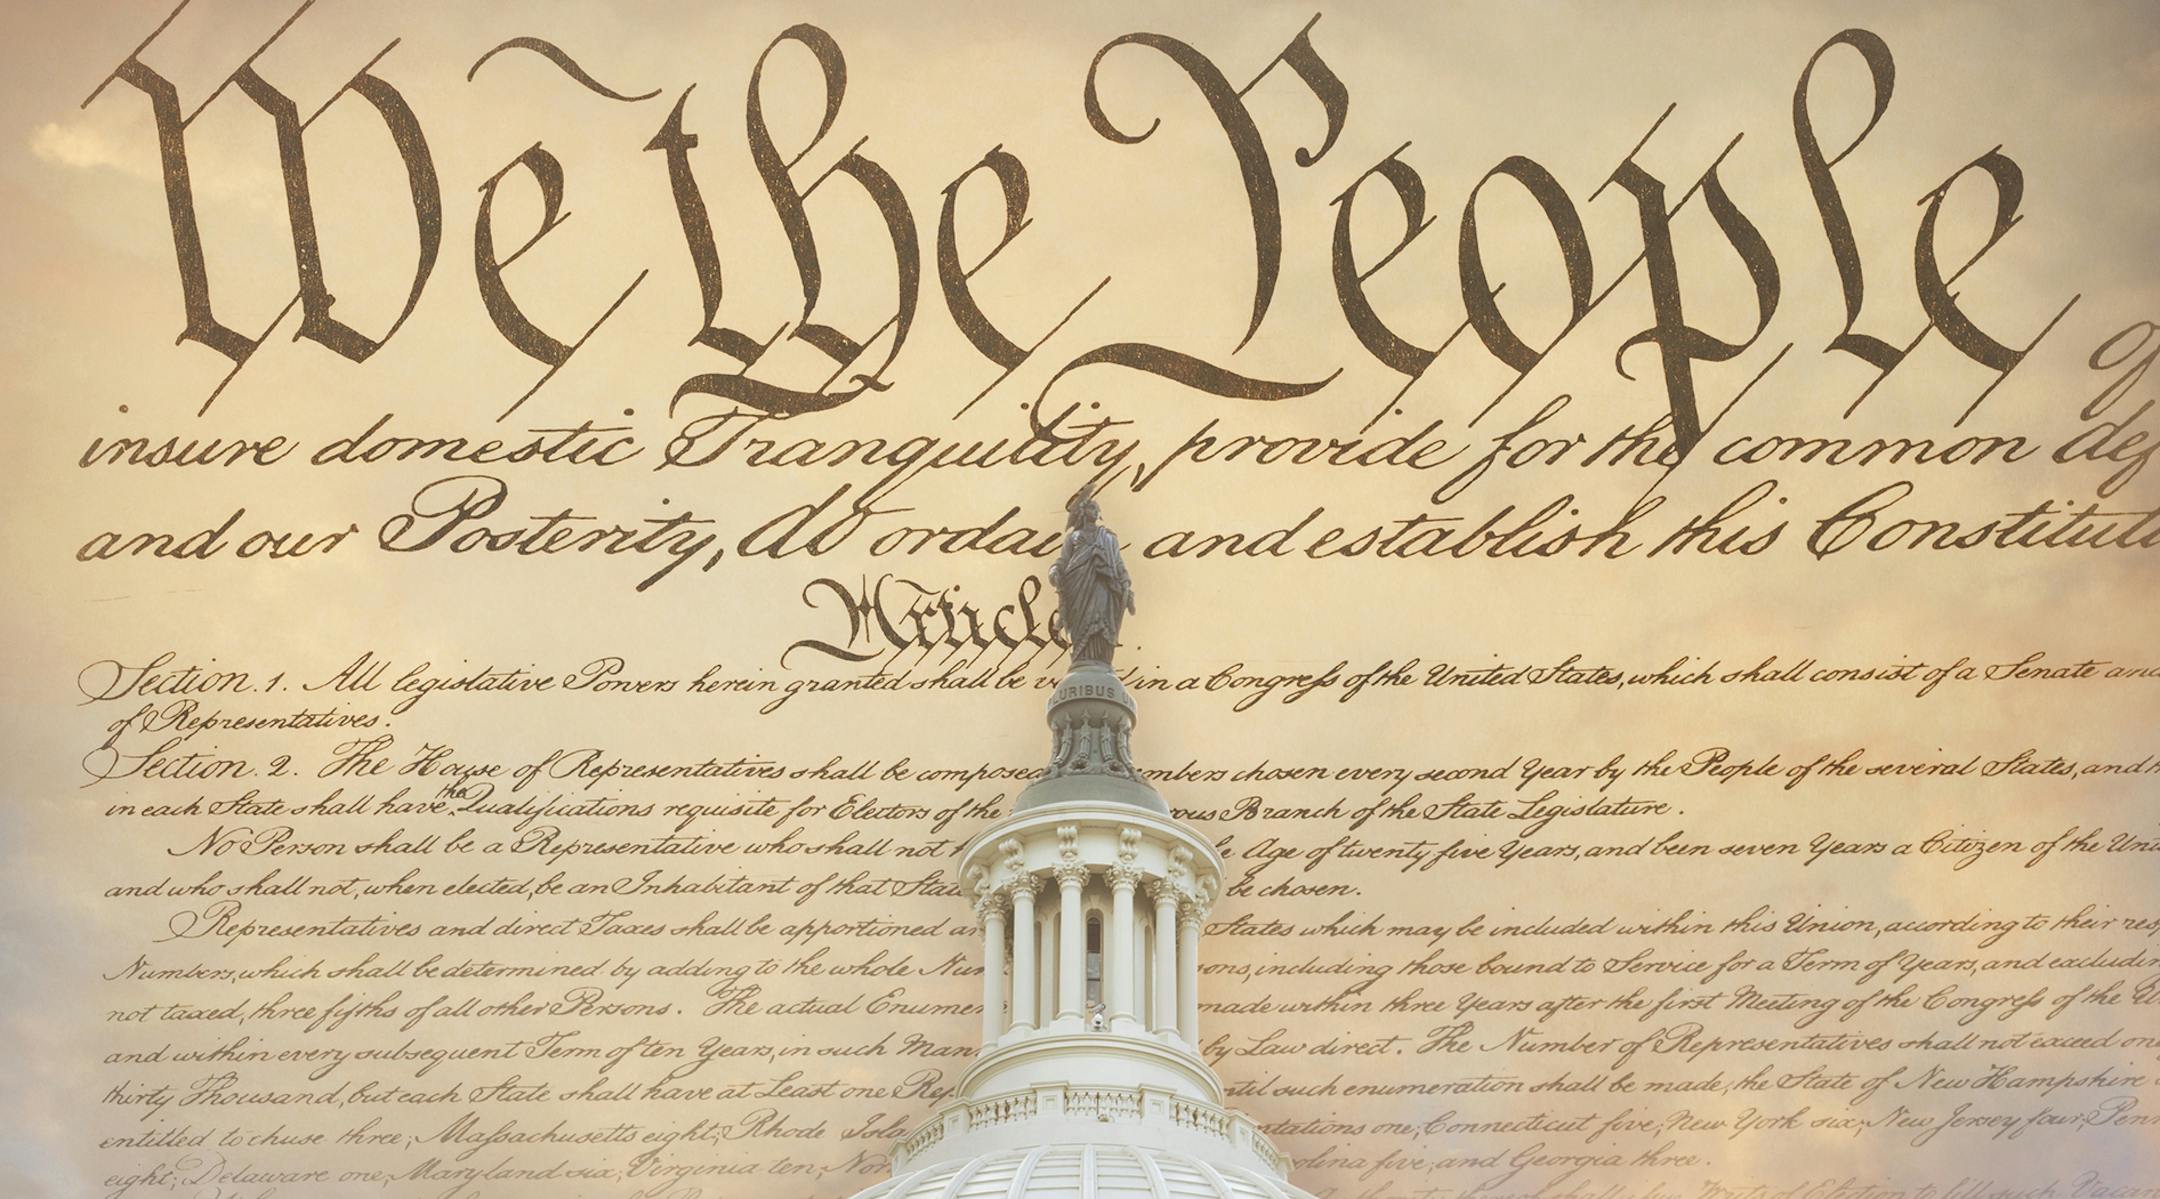 We the People
insure domestic Tranquility, provide for the common def
and our Posterity, do ordain and establish this Constituti
Article
Section. 1. All legislative Powers herein granted shall be vested in a Congress of the United States, which shall consist of a Senate and
URIBUS U
of Representatives.
Section. 2. The House of Representatives shall be composed mbers chosen every second Year by the People of the several States, and
the
in each State shall have Qualifications requisite for Electors of the rous Branch of the State Legislature.
No Person shall be a Representative who shall not Age of twenty five Years, and been seven Years a Citizen of the Uni
and who shall not, when elected, be an Inhabitant of that State be chosen.
Representatives and direct Taxes shall be apportioned States which may be included within this Union, according to their res
Numbers, which shall be determined by adding to the whole Num sons, including those bound to Service for a Term of Years, and excludin
not taxed, three fifths of all other Persons. The actual Enumer made within three Years after the first Meeting of the Congress of the
and within every subsequent Term of ten Years, in such Man by Law direct. The Number of Representatives shall not exceed one
thirty Thousand, but each State shall have at Least one Rep ntil such enumeration shall be made, the State of New Hampshire
entitled to chuse three; Massachusetts eight; Rhode Isla ntations one; Connecticut five; New York six; New Jersey four; Penn
eight; Delaware one; Maryland six; Virginia ten; Nor olina five; and Georgia three.